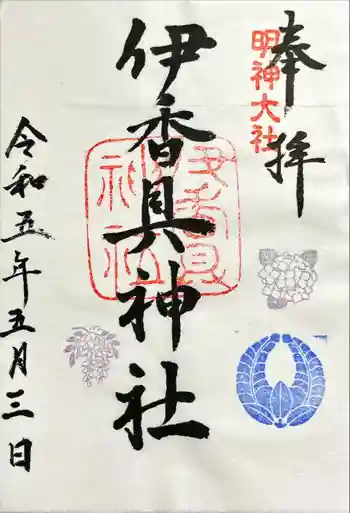 奉拝
明神大社
伊香具神社
伊香具神社
令和五年五月三日